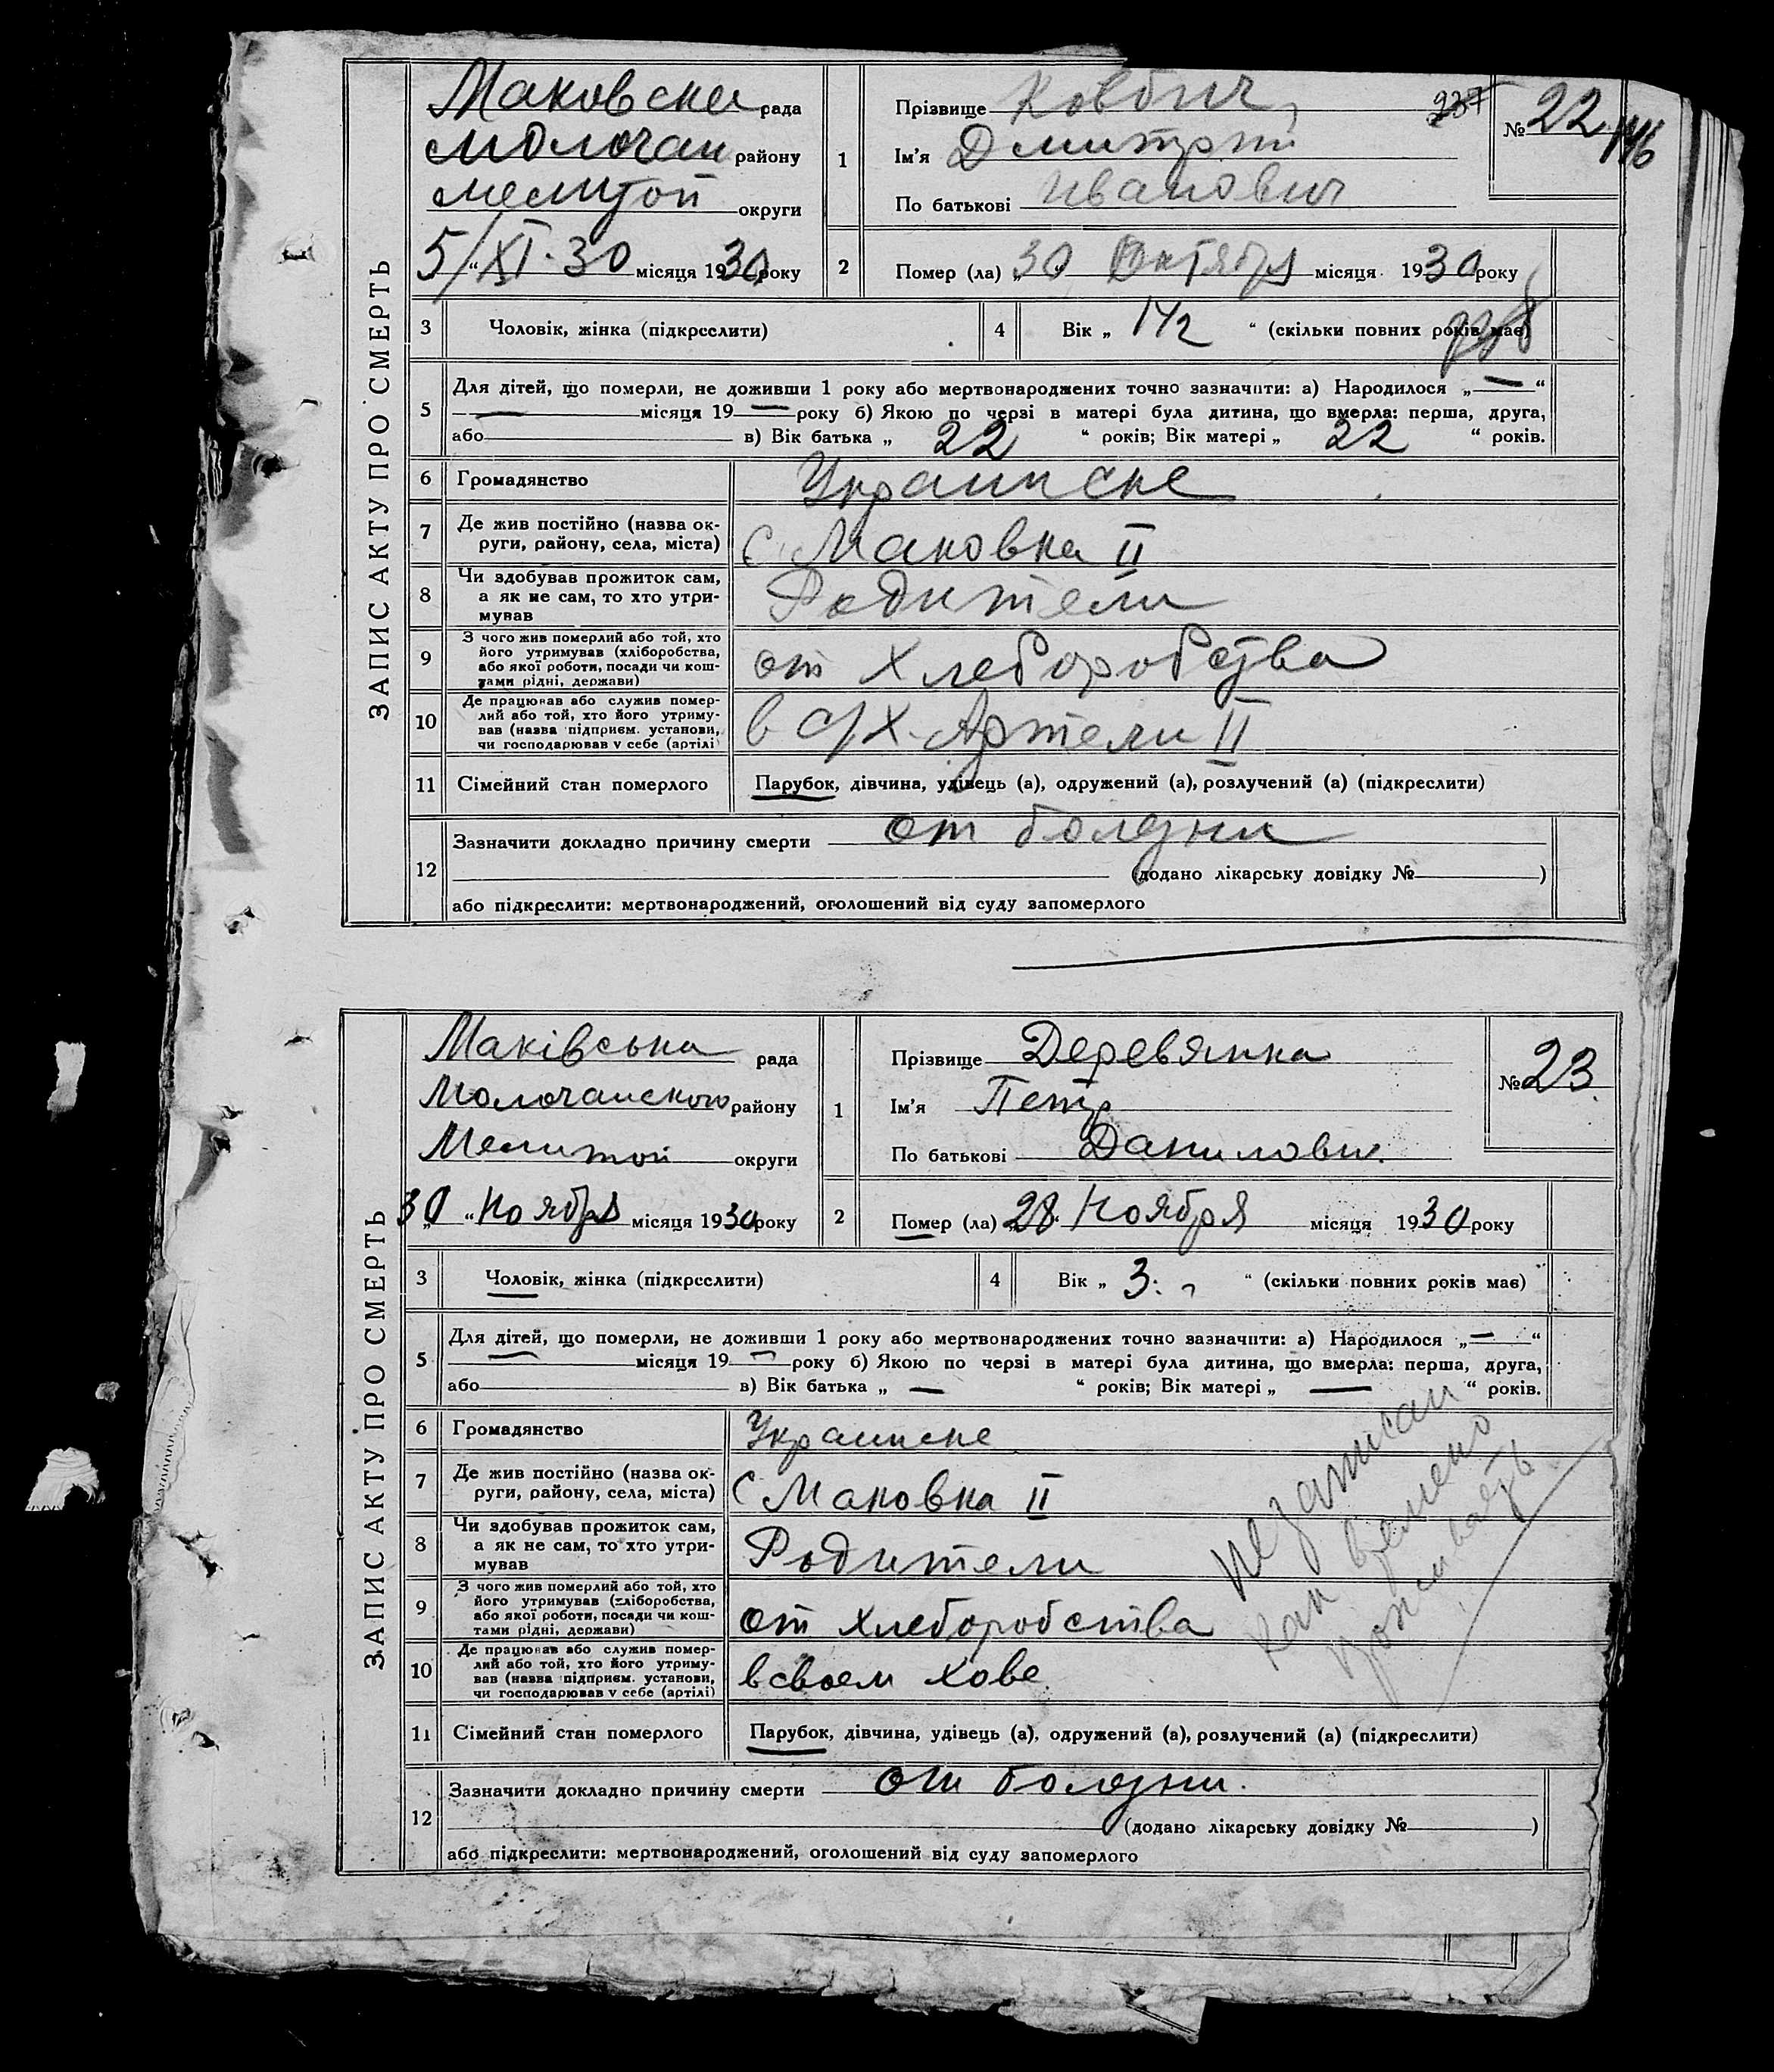 ЗАПИС АКТУ ПРО СМЕРТЬ
Маковска рада
Молочан району
Мелитоп округи
5/XI-30 місяця 1930 року
1
Прізвище Ковбич
237
Ім'я Дмитрий
По батькові Иванович
№ 22
146
2 Помер (ла) „30 Октября місяця 1930 року
3 Чоловік, жінка (підкреслити)
4 Вік „ 1 1/2 “ (скільки повних років має)
5 Для дітей, що померли, не доживши 1 року або мертвонароджених точно зазначити: а) Народилося „ — “
— місяця 19 — року б) Якою по черзі в матері була дитина, що вмерла: перша, друга,
або в) Вік батька „ 22 “ років; Вік матері „ 22 “ років.
6 Громадянство Украинске
7 Де жив постійно (назва ок-
руги, району, села, міста) с Маковка II
8 Чи здобував прожиток сам,
а як не сам, то хто утри-
мував Родители
9 З чого жив померлий або той, хто
його утримував (хліборобства,
або якої роботи, посади чи кош-
тами рідні, держави) от Хлеборобства
10 Де працював або служив помер-
лий або той, хто його утриму-
вав (назва підприєм. установи,
чи господарював у себе (артілі) в С/Х. Артели II
11 Сімейний стан померлого Парубок, дівчина, удівець (а), одружений (а), розлучений (а) (підкреслити)
12 Зазначити докладно причину смерти от болезни
(додано лікарську довідку № )
або підкреслити: мертвонароджений, оголошений від суду запомерлого
ЗАПИС АКТУ ПРО СМЕРТЬ
Маківська рада
Молочанского району
Мелитоп округи
„30“ Ноября місяця 1930 року
1
Прізвище Деревянка
Ім'я Петр
По батькові Данилович
№ 23
2 Помер (ла) „28“ Ноября місяця 1930 року
3 Чоловік, жінка (підкреслити)
4 Вік „ 3. “ (скільки повних років має)
5 Для дітей, що померли, не доживши 1 року або мертвонароджених точно зазначити: а) Народилося „ — “
— місяця 19 — року б) Якою по черзі в матері була дитина, що вмерла: перша, друга,
або в) Вік батька „ — “ років; Вік матері „ — “ років.
6 Громадянство Украинске
7 Де жив постійно (назва ок-
руги, району, села, міста) с Маковка II
8 Чи здобував прожиток сам,
а як не сам, то хто утри-
мував Родители
9 З чого жив померлий або той, хто
його утримував (хліборобства,
або якої роботи, посади чи кош-
тами рідні, держави) от хлеборобства
10 Де працював або служив помер-
лий або той, хто його утриму-
вав (назва підприєм. установи,
чи господарював у себе (артілі) в своем хове.
не записан
11 Сімейний стан померлого Парубок, дівчина, удівець (а), одружений (а), розлучений (а) (підкреслити)
12 Зазначити докладно причину смерти от болезни.
(додано лікарську довідку № )
або підкреслити: мертвонароджений, оголошений від суду запомерлого